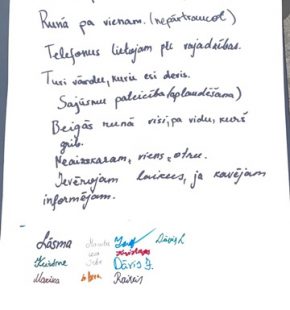 Runā pa vienam. (nepārtraucot)
Telefonus lietojam pēc vajadzības.
Turi vārdu, kuru esi devis.
Sajūsmu paleicība (aplaudēšana)
Beigās runā visi, pa vidu, kurš
grib.
Neaizskaram, viens, otru.
Ievērojam laikus, ja kavējam
informējam.
Lāsma Dāvis L
Kristīne Kristaps
Dāvis J.
Marika Raivis